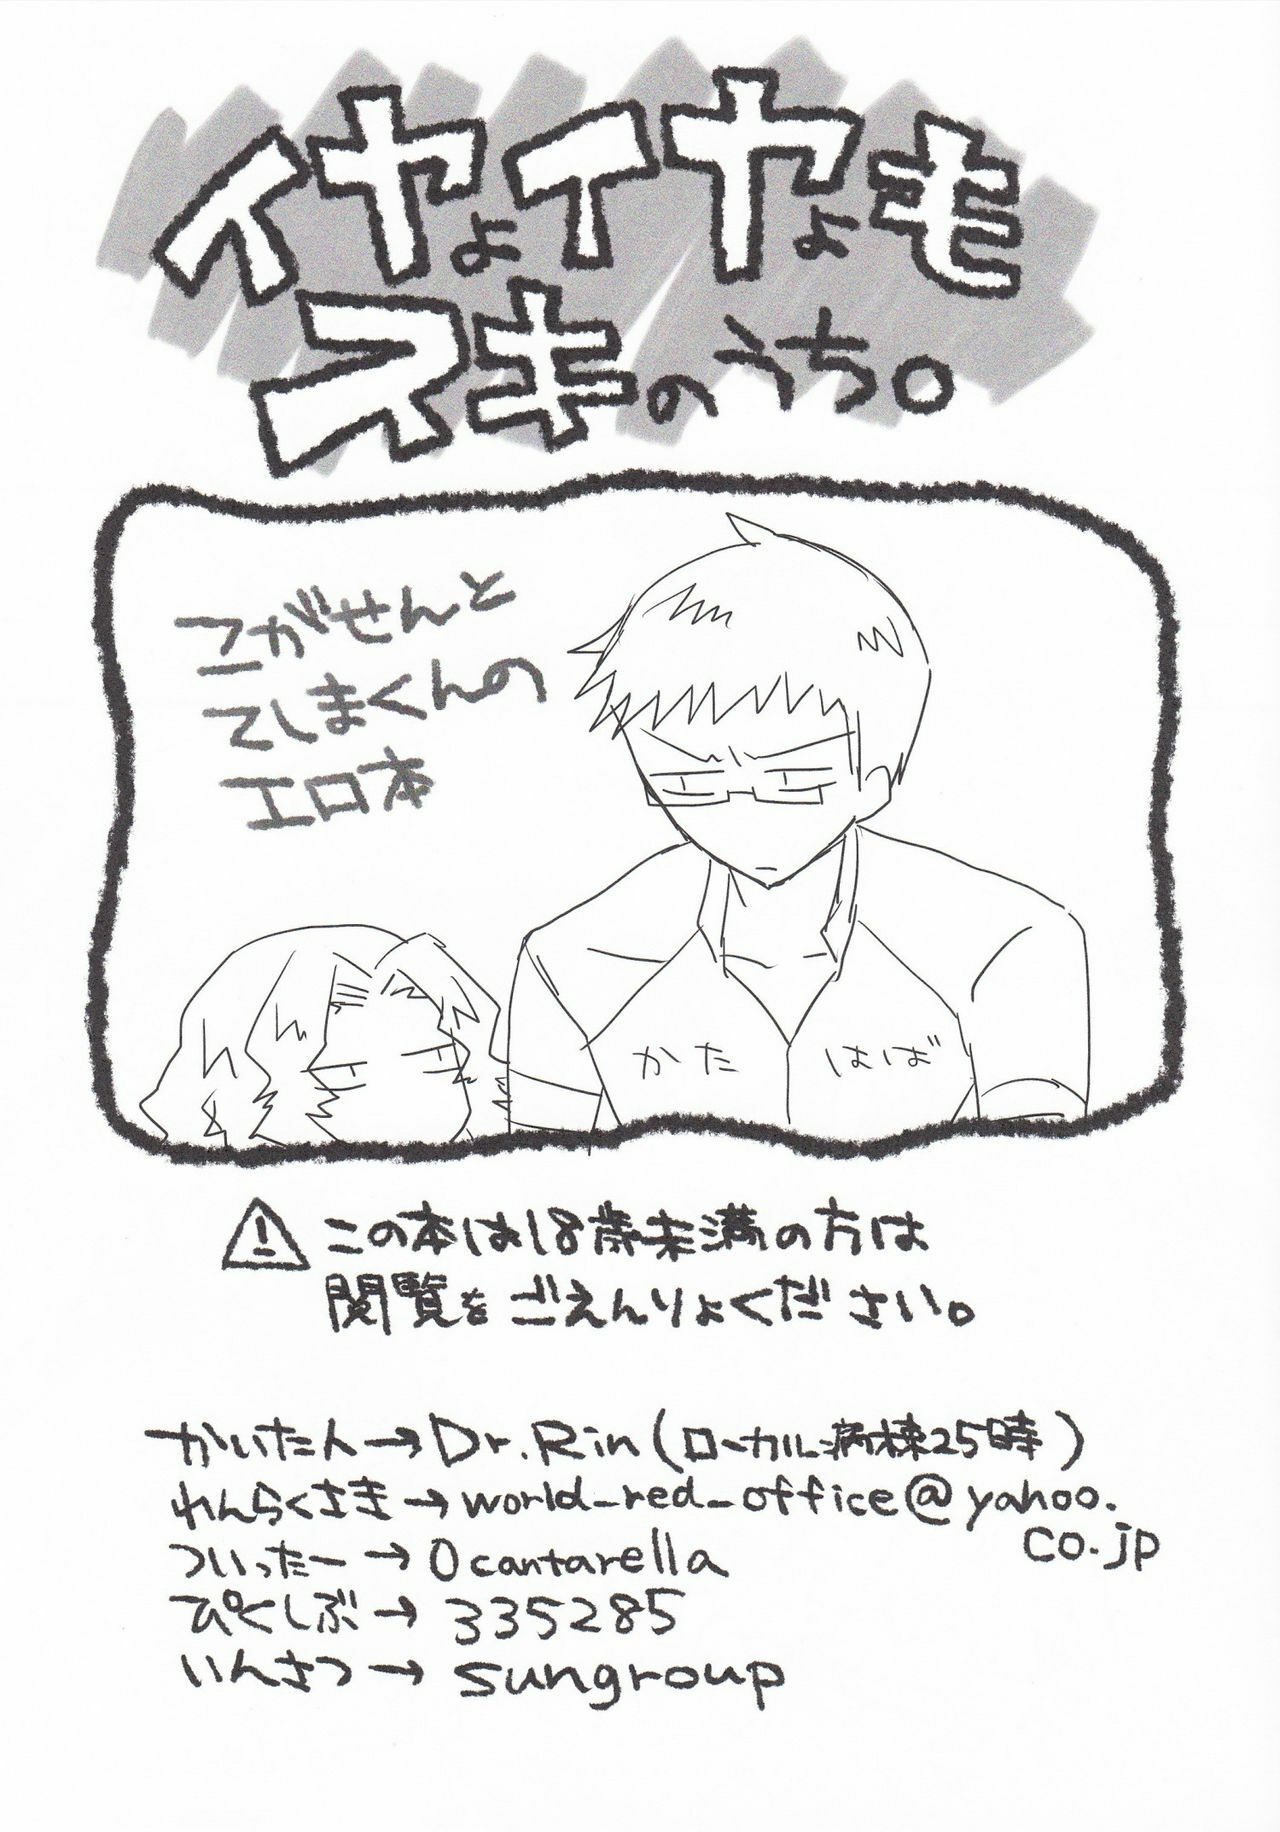 イヤよイヤよも
スキのうち。
こがせんと
てしまくんの
エロ本
かた はば
この本は18歳未満の方は
閲覧をごえんりょください。
かいたん→Dr.Rin(ローカル病棟25時)
れんらくさき→world_red_office@yahoo.
co.jp
ついったー→0cantarella
ぴくしぶ→335285
いんさつ→sungroup